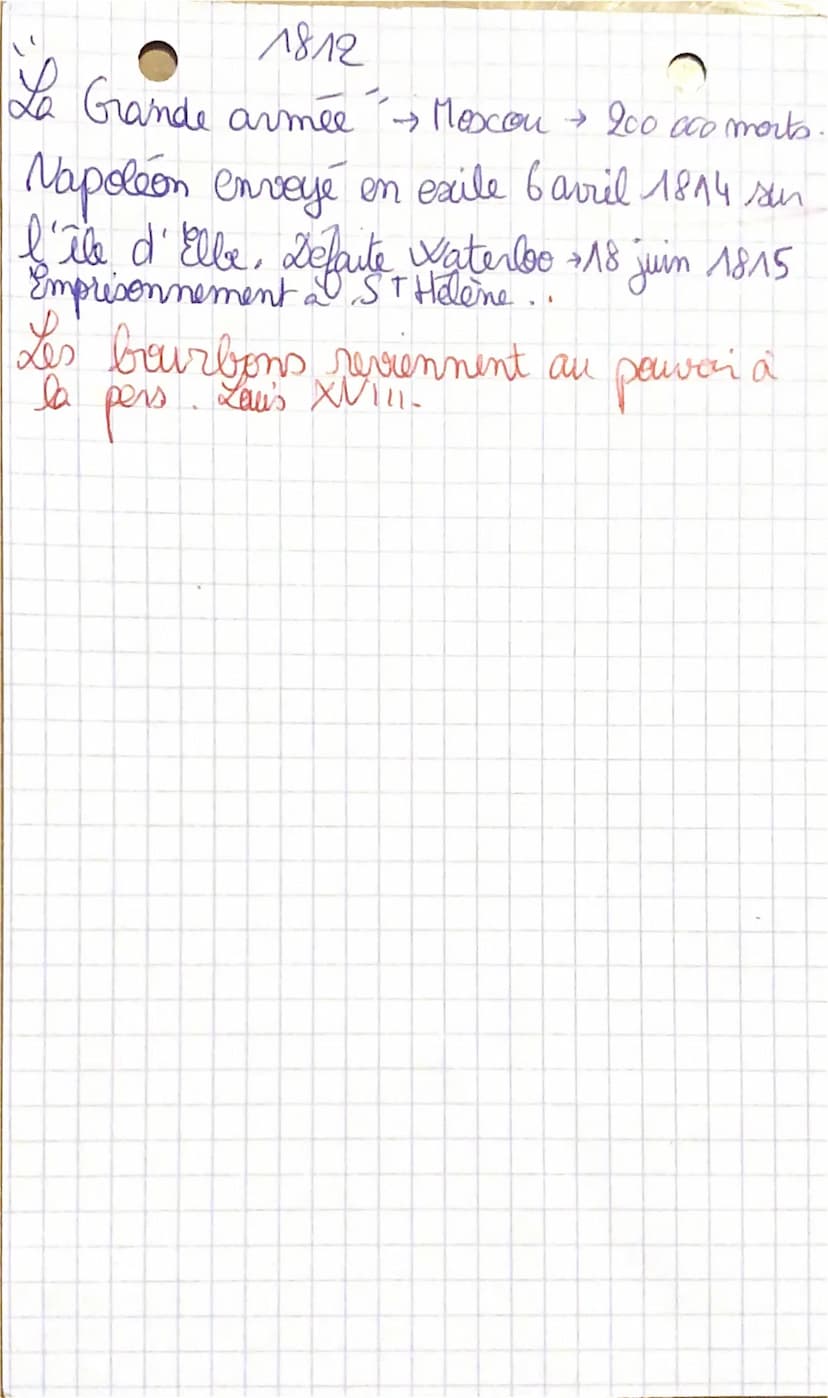 1812
"La Grande armée" → Moscou → 200 000 morts.
Napoléon envoyé en exile 6 avril 1814 sur
l'île d'Elbe. Défaite Waterloo → 18 juin 1815
Emprisonnement à ST Hélène..
Les bourbons reviennent au pouvoir à
la pers. Louis XVIII.